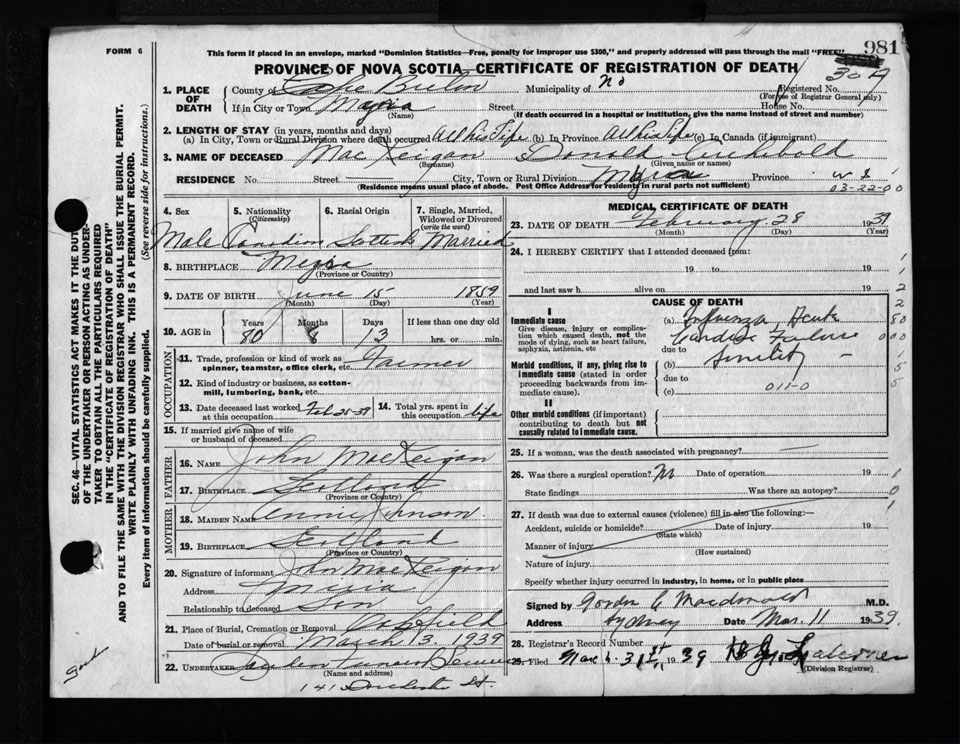 FORM 6
This form if placed in an envelope, marked "Dominion Statistics—Free, penalty for improper use $300," and properly addressed will pass through the mail "FREE"
981
PROVINCE OF NOVA SCOTIA—CERTIFICATE OF REGISTRATION OF DEATH
30A
1. PLACE OF DEATH
County of Cape Breton Municipality of No Registered No.
(For use of Registrar General only)
If in City or Town Myria Street House No.
(Name) (If death occurred in a hospital or institution, give the name instead of street and number)
2. LENGTH OF STAY (in years, months and days)
(a) In City, Town or Rural Division where death occurred All his Life (b) In Province All his Life (c) In Canada (if immigrant)
3. NAME OF DECEASED MacKeigan Donald Archibald
(Surname) (Given name or names)
RESIDENCE No. Street City, Town or Rural Division Province N S
(Residence means usual place of abode. Post Office Address for residents in rural parts not sufficient)
03-22-00
4. Sex 5. Nationality (Citizenship) 6. Racial Origin 7. Single, Married, Widowed or Divorced (write the word)
Male Canadian Scottish Married
8. BIRTHPLACE
(Province or Country)
9. DATE OF BIRTH June 15 1859
(Month) (Day) (Year)
10. AGE in Years Months Days If less than one day old
80 8 13 hrs. or min.
OCCUPATION
11. Trade, profession or kind of work as spinner, teamster, office clerk, etc. Farmer
12. Kind of industry or business, as cotton-mill, lumbering, bank, etc.
13. Date deceased last worked at this occupation Feb 25-39 14. Total yrs. spent in this occupation life
15. If married give name of wife or husband of deceased
FATHER
16. NAME John MacKeigan
17. BIRTHPLACE Scotland
(Province or Country)
MOTHER
18. MAIDEN NAME Annie Johnson
19. BIRTHPLACE Scotland
(Province or Country)
20. Signature of informant John MacKeigan
Address
Relationship to deceased Son
21. Place of Burial, Cremation or Removal
Date of burial or removal March 13, 1939
22. UNDERTAKER
(Name and address)
141 Dorchester St.
MEDICAL CERTIFICATE OF DEATH
23. DATE OF DEATH February 28 1939
(Month) (Day) (Year)
24. I HEREBY CERTIFY that I attended deceased from:
19 to 19
and last saw h alive on 19
CAUSE OF DEATH
I
Immediate cause (a) Influenza Acute
Give disease, injury or complication which caused death, not the mode of dying, such as heart failure, asphyxia, asthenia, etc
Cardiac Failure
due to Senility
Morbid conditions, if any, giving rise to immediate cause (stated in order proceeding backwards from immediate cause)
(b)
due to
(c) 011-0
II
Other morbid conditions (if important) contributing to death but not causally related to immediate cause.
25. If a woman, was the death associated with pregnancy?
26. Was there a surgical operation? No Date of operation 19
State findings Was there an autopsy?
27. If death was due to external causes (violence) fill in also the following:—
Accident, suicide or homicide? Date of injury 19
(State which)
Manner of injury
(How sustained)
Nature of injury
Specify whether injury occurred in industry, in home, or in public place
Signed by Gordon C Macdonald M.D.
Address Sydney Date Mar. 11 1939.
28. Registrar's Record Number
29. Filed March 31st 1939
(Division Registrar)
SEC. 46—VITAL STATISTICS ACT MAKES IT THE DUTY
OF THE UNDERTAKER OR PERSON ACTING AS UNDER-
TAKER TO OBTAIN ALL THE PARTICULARS REQUIRED
IN THE "CERTIFICATE OF REGISTRATION OF DEATH"
AND TO FILE THE SAME WITH THE DIVISION REGISTRAR WHO SHALL ISSUE THE BURIAL PERMIT.
WRITE PLAINLY WITH UNFADING INK. THIS IS A PERMANENT RECORD.
Every item of information should be carefully supplied. (See reverse side for instructions.)